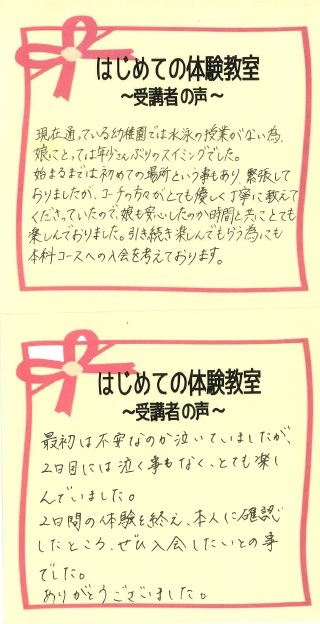 はじめての体験教室
～受講者の声～
現在通っている幼稚園では水泳の授業がない為、
娘にとっては年ぶりのスイミングでした。
始まるまでは初めての場所という事もあり、緊張して
おりましたが、コーチの方々がとても優しく丁寧に教えて
くださっていたので、娘も安心したのか時間と共にとても
楽しんでおりました。引き続き楽しんでもらう為にも
本科コースへの入会を考えております。
はじめての体験教室
～受講者の声～
最初は不安なのか泣いていましたが、
2日目には泣く事もなく、とても楽し
んでいました。
2日間の体験を終え、本人に確認
したところ、ぜひ入会したいとの事
でした。
ありがとうございました。